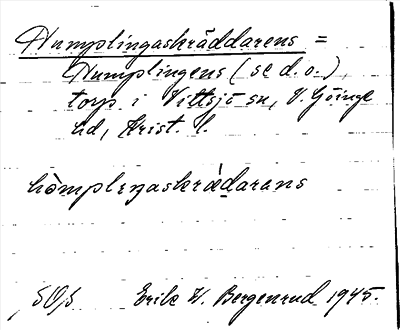 Humplingaskräddarens =
Humplingens (se d. o.),
torp i Vittsjö sn, V. Göinge
hd, Krist. l.
hòmpleŋaskrædarans
SOS Erik W. Bergenrud 1945.